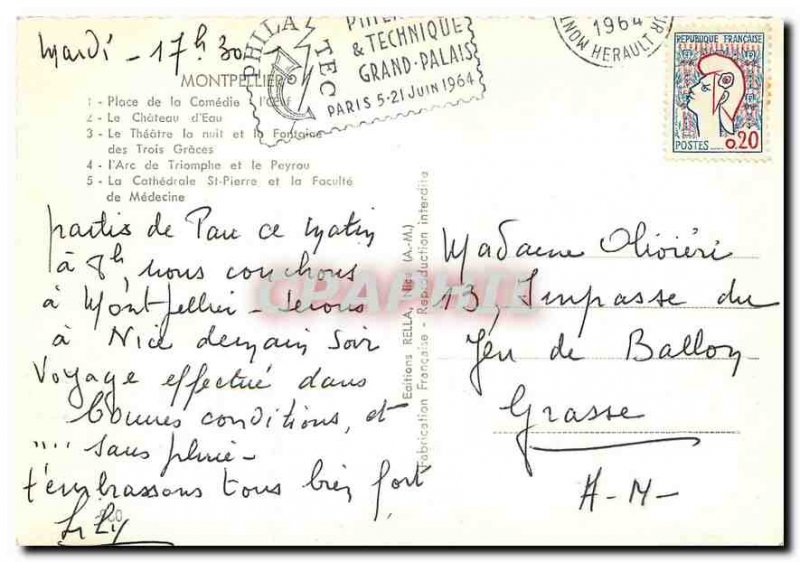 Mardi - 17h 30
MONTPELLIER
1 - Place de la Comédie l'Œuf
2 - Le Château d'Eau
3 - Le Théâtre la nuit et la Fontaine
des Trois Grâces
4 - l'Arc de Triomphe et le Peyrou
5 - La Cathédrale St-Pierre et la Faculté
de Médecine
PHILATEC
& TECHNIQUE
GRAND-PALAIS
PARIS 5-21 JUIN 1964
1964
HERAULT
REPUBLIQUE FRANÇAISE
POSTES 0,20
partis de Pau ce matin
à 8h, nous couchons
à Montpellier - serons
à Nice demain soir
Voyage effectué dans
bonnes conditions, et
"" sans pluie -
t'embrassons tous bien fort
Lily
Editions RELLA, Nice (A.-M.)
Fabrication Française - Reproduction interdite
CPAPHIL
Madame Olivièri
13, Impasse du
Jeu de Ballon
Grasse
A-M-